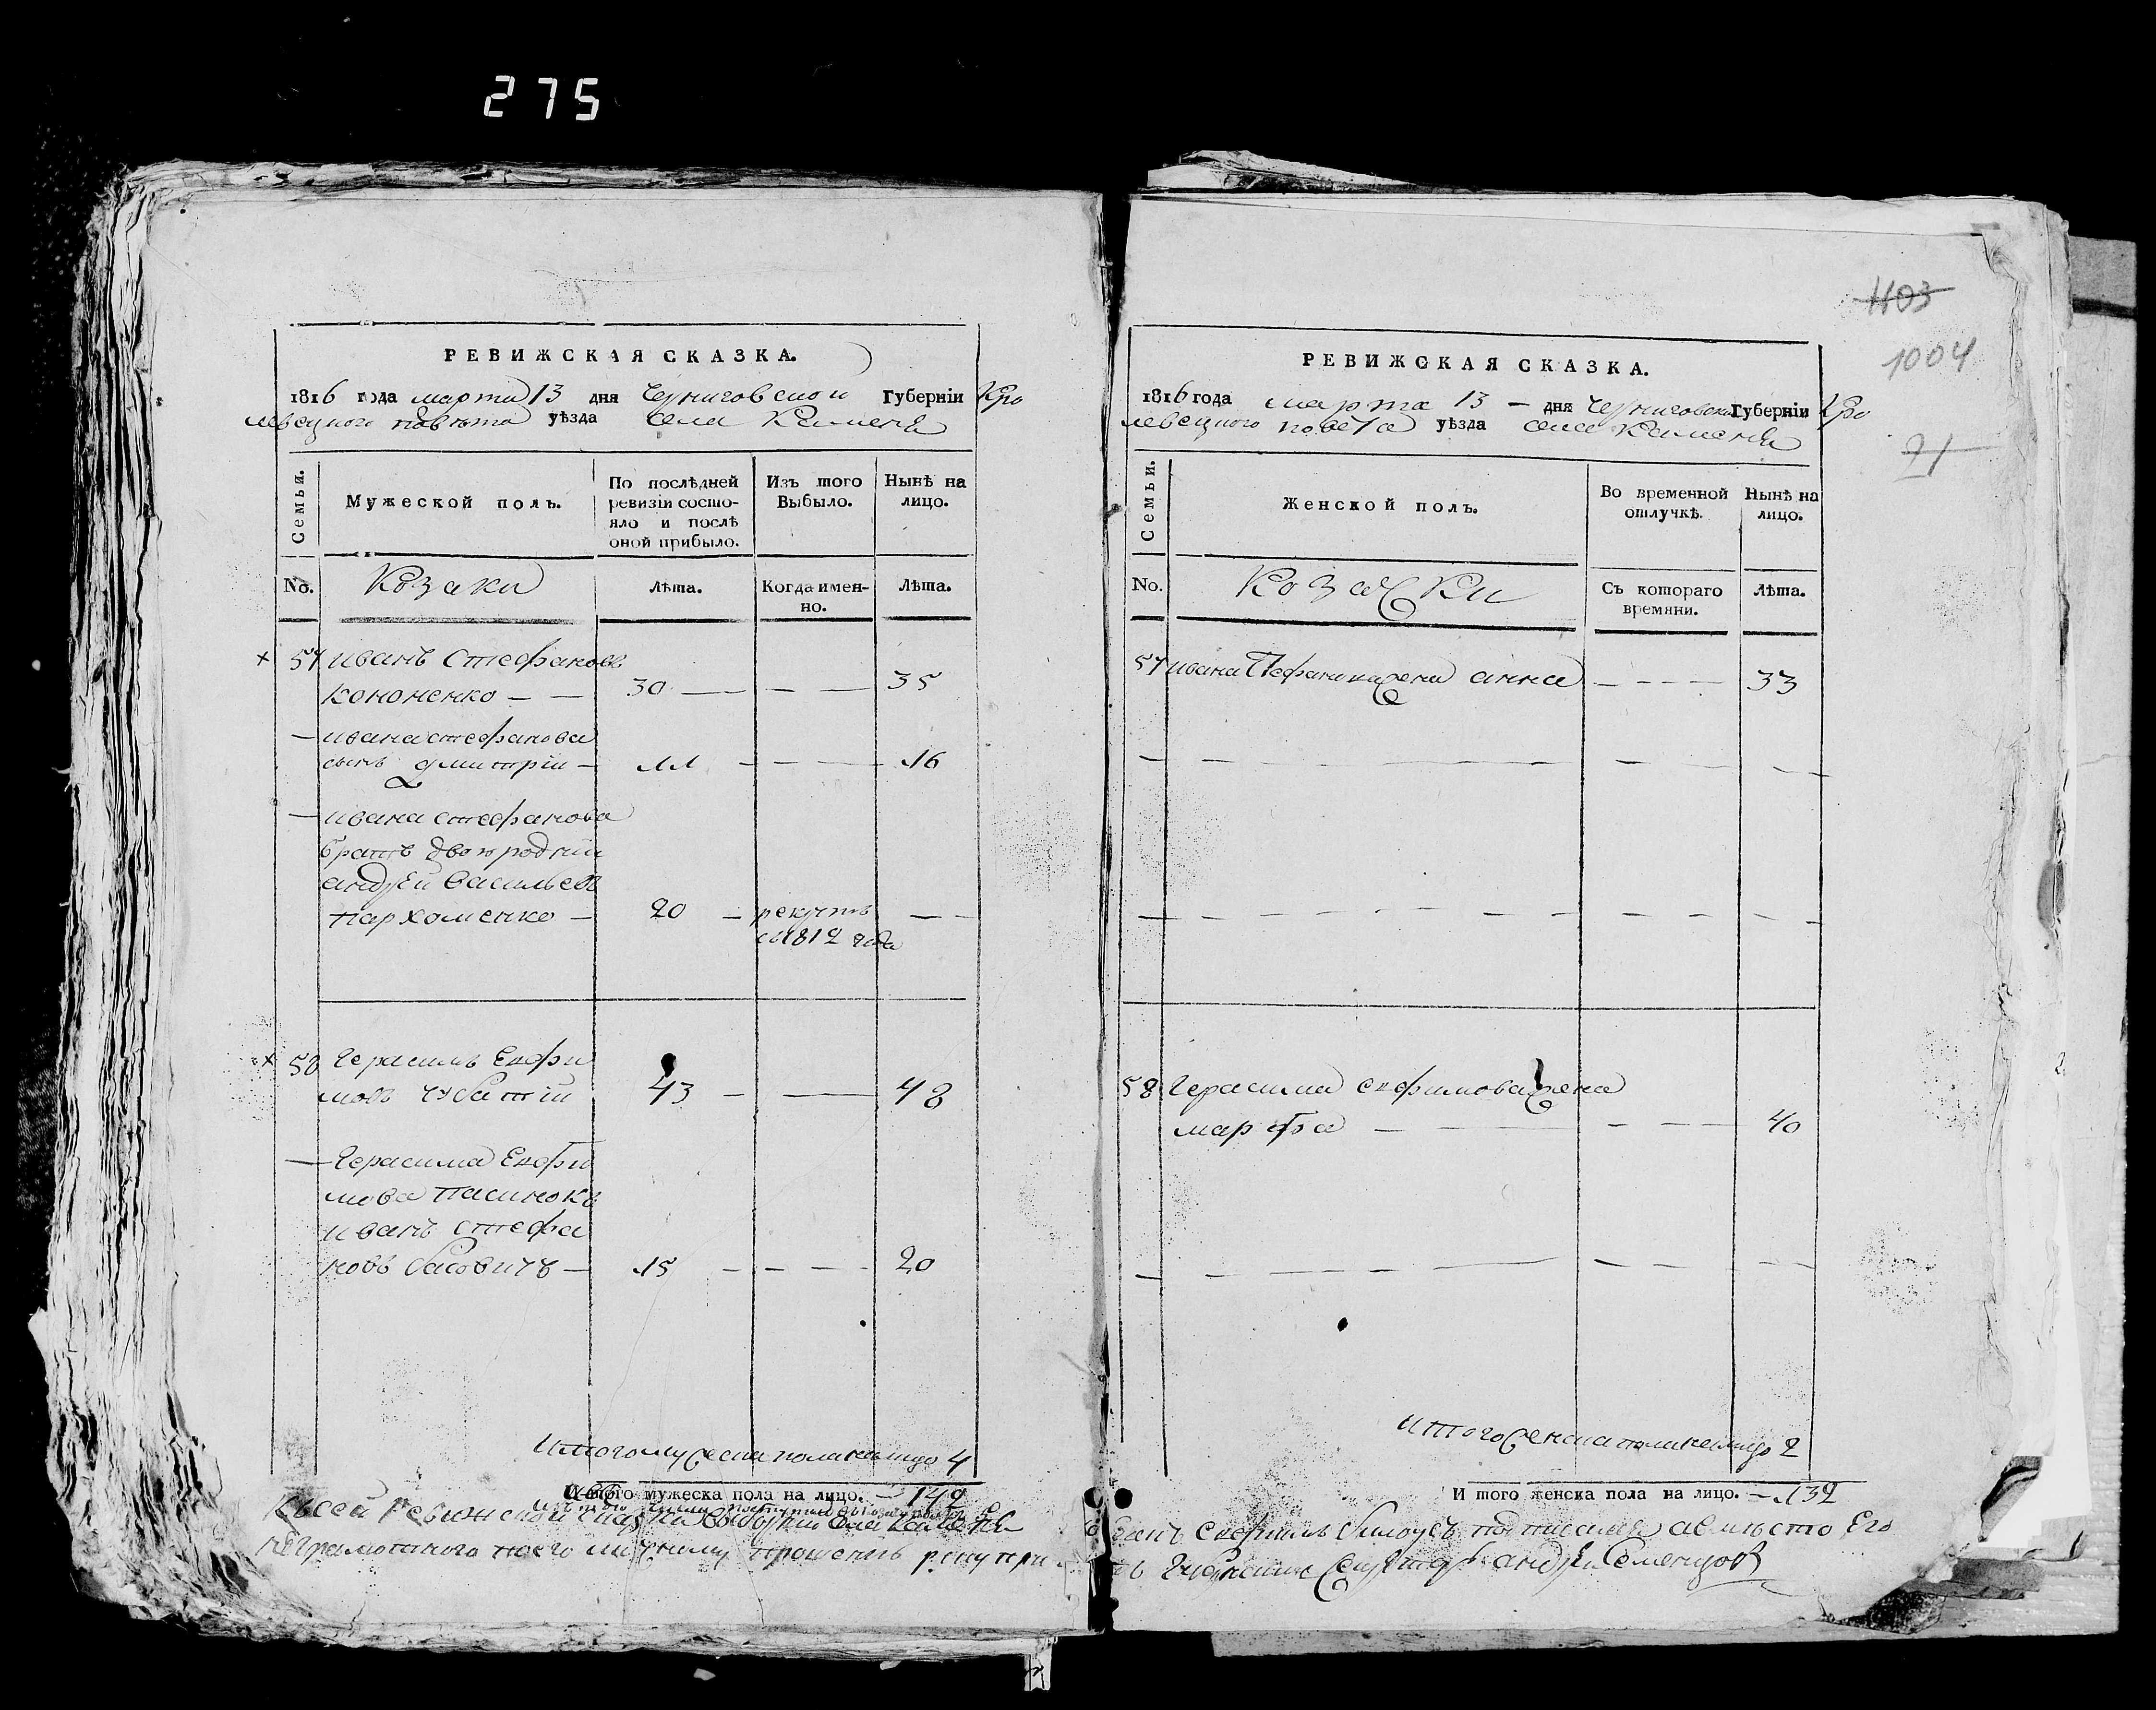 275
РЕВИЖСКАЯ СКАЗКА.
1816 года марта 13 дня Черниговской Губерніи Кро
левецкого повѣта уѣзда села Камены
Семьи. Мужеской полъ. По послѣдней ревизіи состояло и послѣ оной прибыло. Изъ того Выбыло. Нынѣ на лицо.
No. Козаки Лѣта. Когда имен-но. Лѣта.
57 иванъ Стефановъ
кононенко — — 30 — — — 35
— ивана стефанова
сынъ дмитрій — 11 — — — 16
— ивана стефанова
братъ двоюродній
андрей васильевъ
пархоменко — 20 — рекрутъ — —
с 1812 года
58 Герасимъ Ефи
мовъ чубатій 43 — — 48
— Герасима Ефи
мова пасинокъ
иванъ стефа
новъ — 15 — — — 20
Итого мужеска пола налицо 4
Итого мужеска пола на лицо. — 142
неграмотного
1103
1004
21
РЕВИЖСКАЯ СКАЗКА.
1816 года марта 13 — дня Черниговской Губерніи Кро
левецкого повета уѣзда села Камены
Семьи. Женской полъ. Во временной отлучкѣ. Нынѣ на лицо.
No. Козачки Съ котораго времяни. Лѣта.
57 ивана Стефанова жена анна — — — 33
58 Герасима ефимова жена
марфа — — — — — 40
Итого женска пола налицо 2
И того женска пола на лицо. — 132
подписался а вместо Его
андрей Семенцов